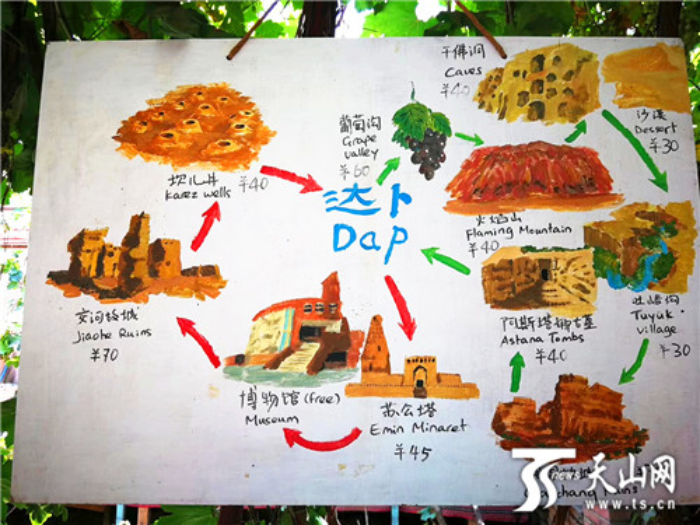 千佛洞
Caves
¥40
沙漠
Dessert
¥30
葡萄沟
Grape
Valley
¥60
坎儿井
Karez wells
¥40
达卜
Dap
火焰山
Flaming Mountain
¥40
吐峪沟
Tuyuk
village
¥30
阿斯塔娜古墓
Astana Tombs
¥40
交河故城
Jiaohe Ruins
¥70
博物馆(free)
Museum
苏公塔
Emin Minaret
¥45
TS news 天山网
www.ts.cn